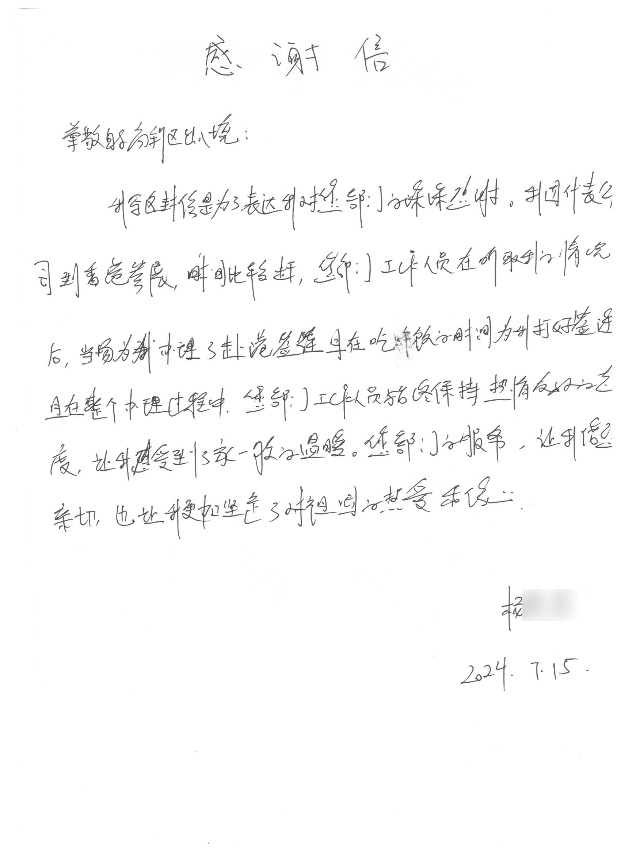 感谢信
尊敬的高新区出入境：
我写这封信是为了表达我对您部门的深深感谢。我因代表公
司到香港参展，时间比较赶，您部门工作人员在听取我的情况
后，当场为我办理了赴港签注且在吃午饭的时间为我打好签送
且在整个办理过程中，您部门工作人员始终保持热情友好的态
度，让我感受到了家一般的温暖。您部门的服务，让我倍感
亲切，也让我更加坚定了对祖国的热爱和
杨
2024.7.15.